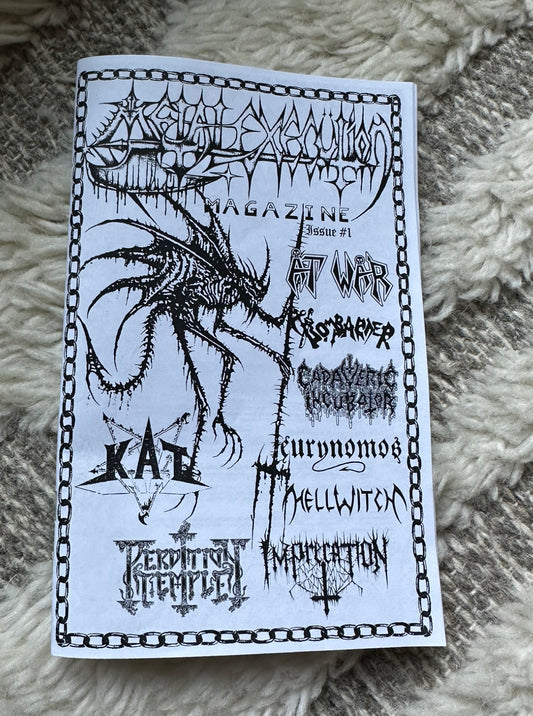 METAL EXECUTION
MAGAZINE
Issue #1
ÅT WÅR
BOMBARDER
CADAVERIC
INCUBATOR
eurynomos
HELLWITCH
KAT
PERDITION
TEMPLE
IMPRECATION